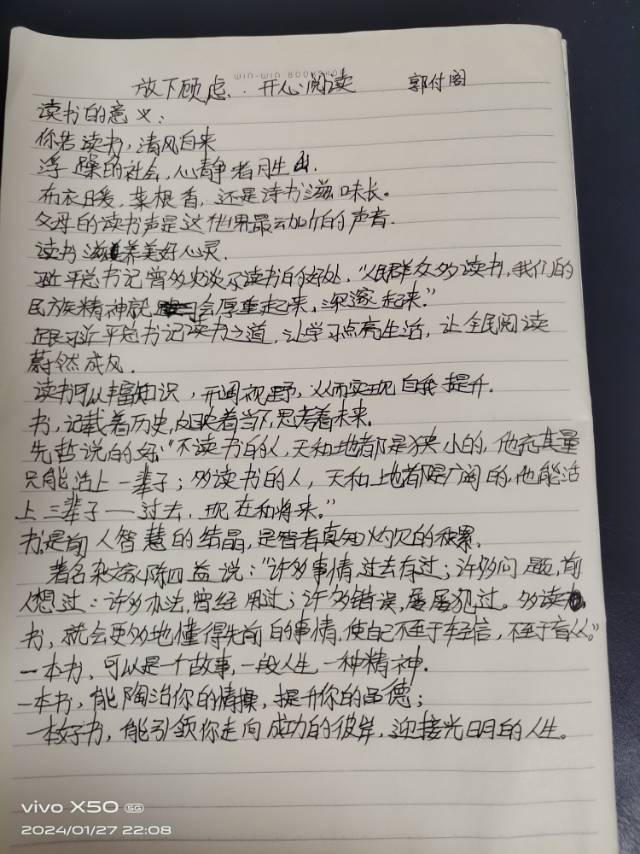 WIN-WIN BOOKSHOP
放下顾虑、开心阅读 郭付阁
读书的意义:
你若读书,清风自来
浮躁的社会,心静者胜出.
布衣暖,菜根香,还是诗书滋味长。
父母的读书声是这世界最动听的声音.
读书滋养美好心灵.
习近平总书记曾多次谈及读书的好处,“人民群众多读书,我们的
民族精神就会厚重起来,深邃起来.”
习近平总书记读书之道,让学习点亮生活,让全民阅读
蔚然成风.
读书可以丰富知识,开阔视野,从而实现自我提升.
书,记载着历史,反映着当下,思考着未来.
先哲说的好:“不读书的人,天和地都是狭小的,他充其量
只能活上一辈子;多读书的人,天和地都是广阔的,他能活
上三辈子——过去、现在和将来.”
书是前人智慧的结晶,是智者真知灼见的积累.
著名杂文家陈四益说:“许多事情,过去有过;许多问题,前
人想过:许多办法,曾经用过;许多错误,屡屡犯过。多读
书,就会更多地懂得先前的事情,使自己不至于轻信,不至于盲从。”
一本书,可以是一个故事,一段人生,一种精神.
一本书,能陶冶你的情操,提升你的品德;
一本好书,能引领你走向成功的彼岸,迎接光明的人生。
vivo X50 5G
2024/01/27 22:08